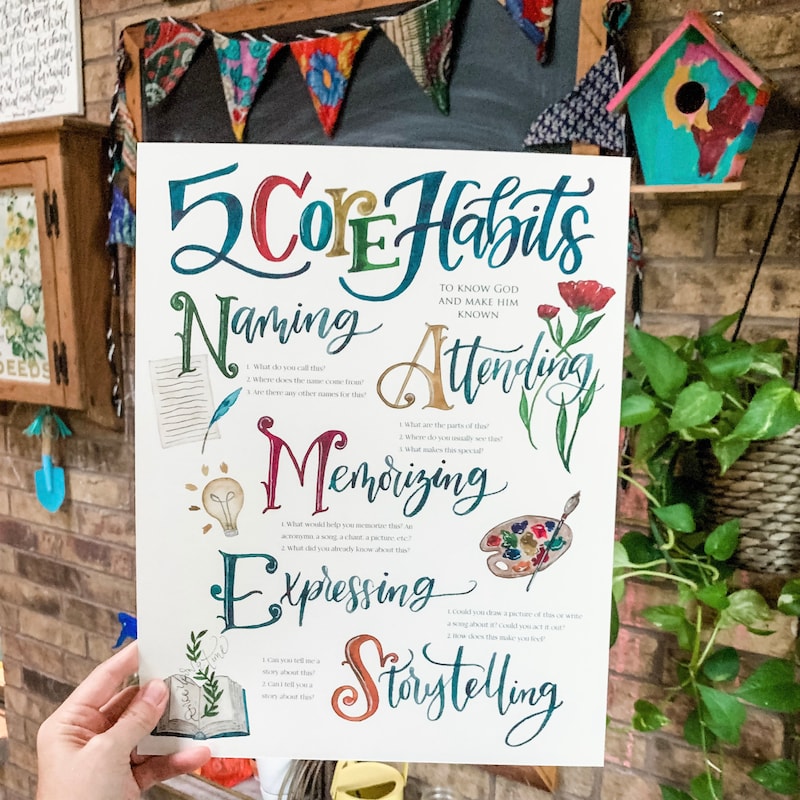 5 Core Habits
TO KNOW GOD
AND MAKE HIM
KNOWN
Naming
1. What do you call this?
2. Where does the name come from?
3. Are there any other names for this?
Attending
1. What are the parts of this?
2. Where do you usually see this?
3. What makes this special?
Memorizing
1. What would help you memorize this? An
acronym, a song, a chant, a picture, etc.?
2. What did you already know about this?
Expressing
1. Could you draw a picture of this or write
a song about it? Could you act it out?
2. How does this make you feel?
Storytelling
1. Can you tell me a
story about this?
2. Can I tell you a
story about this?
SEEDS